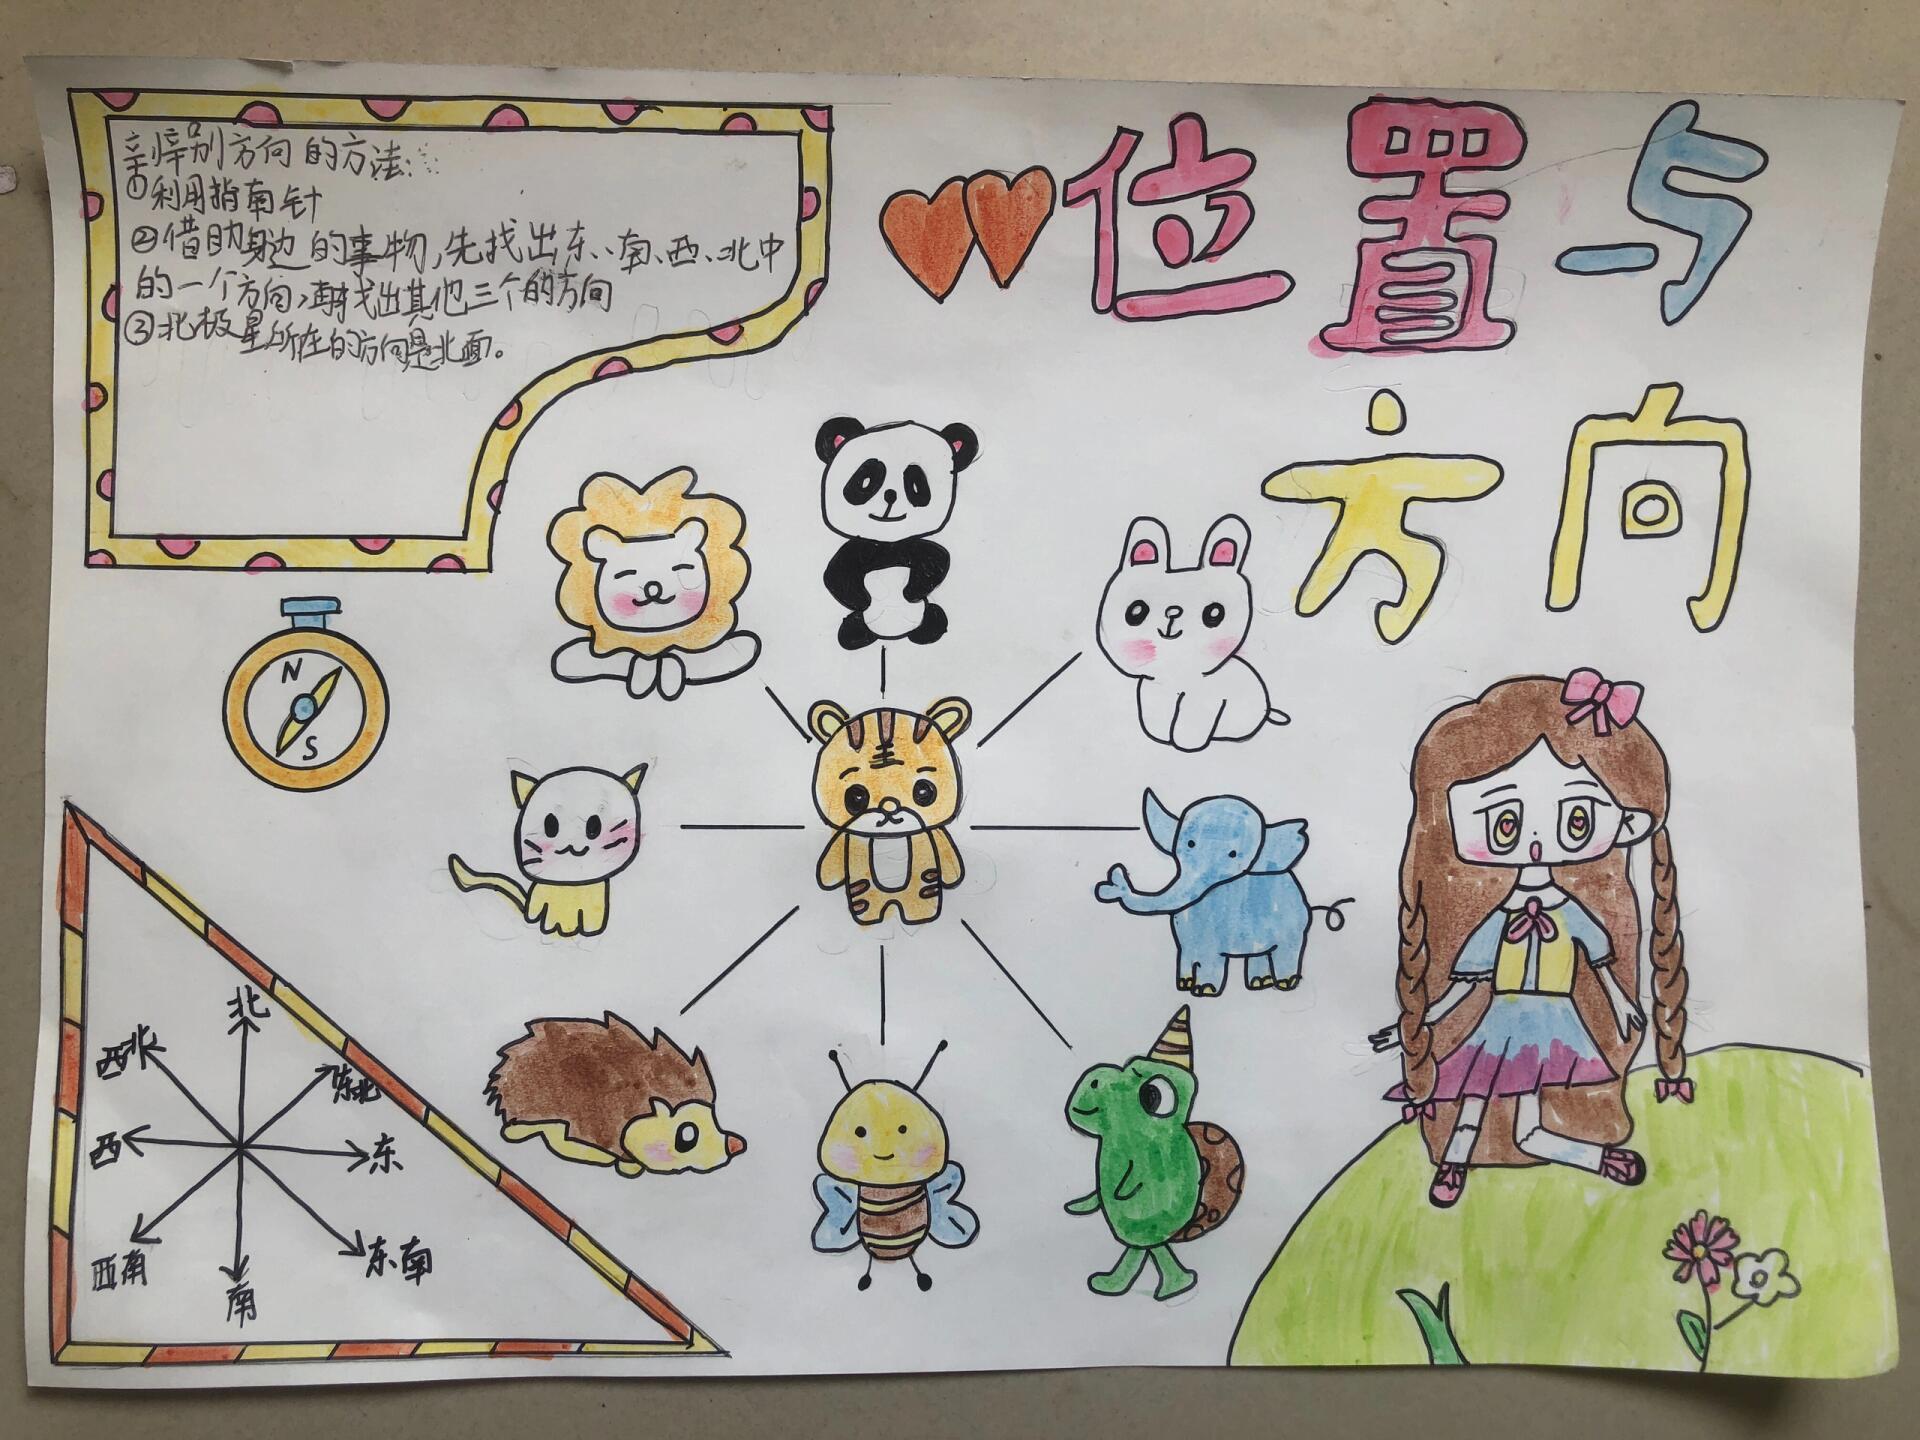 辨别方向的方法:
①利用指南针
②借助身边的事物,先找出东、南、西、北中
的一个方向,再找出其他三个的方向
③北极星所在的方向是北面。
位置与
方向
N
S
北
西北
东北
西
东
西南
东南
南